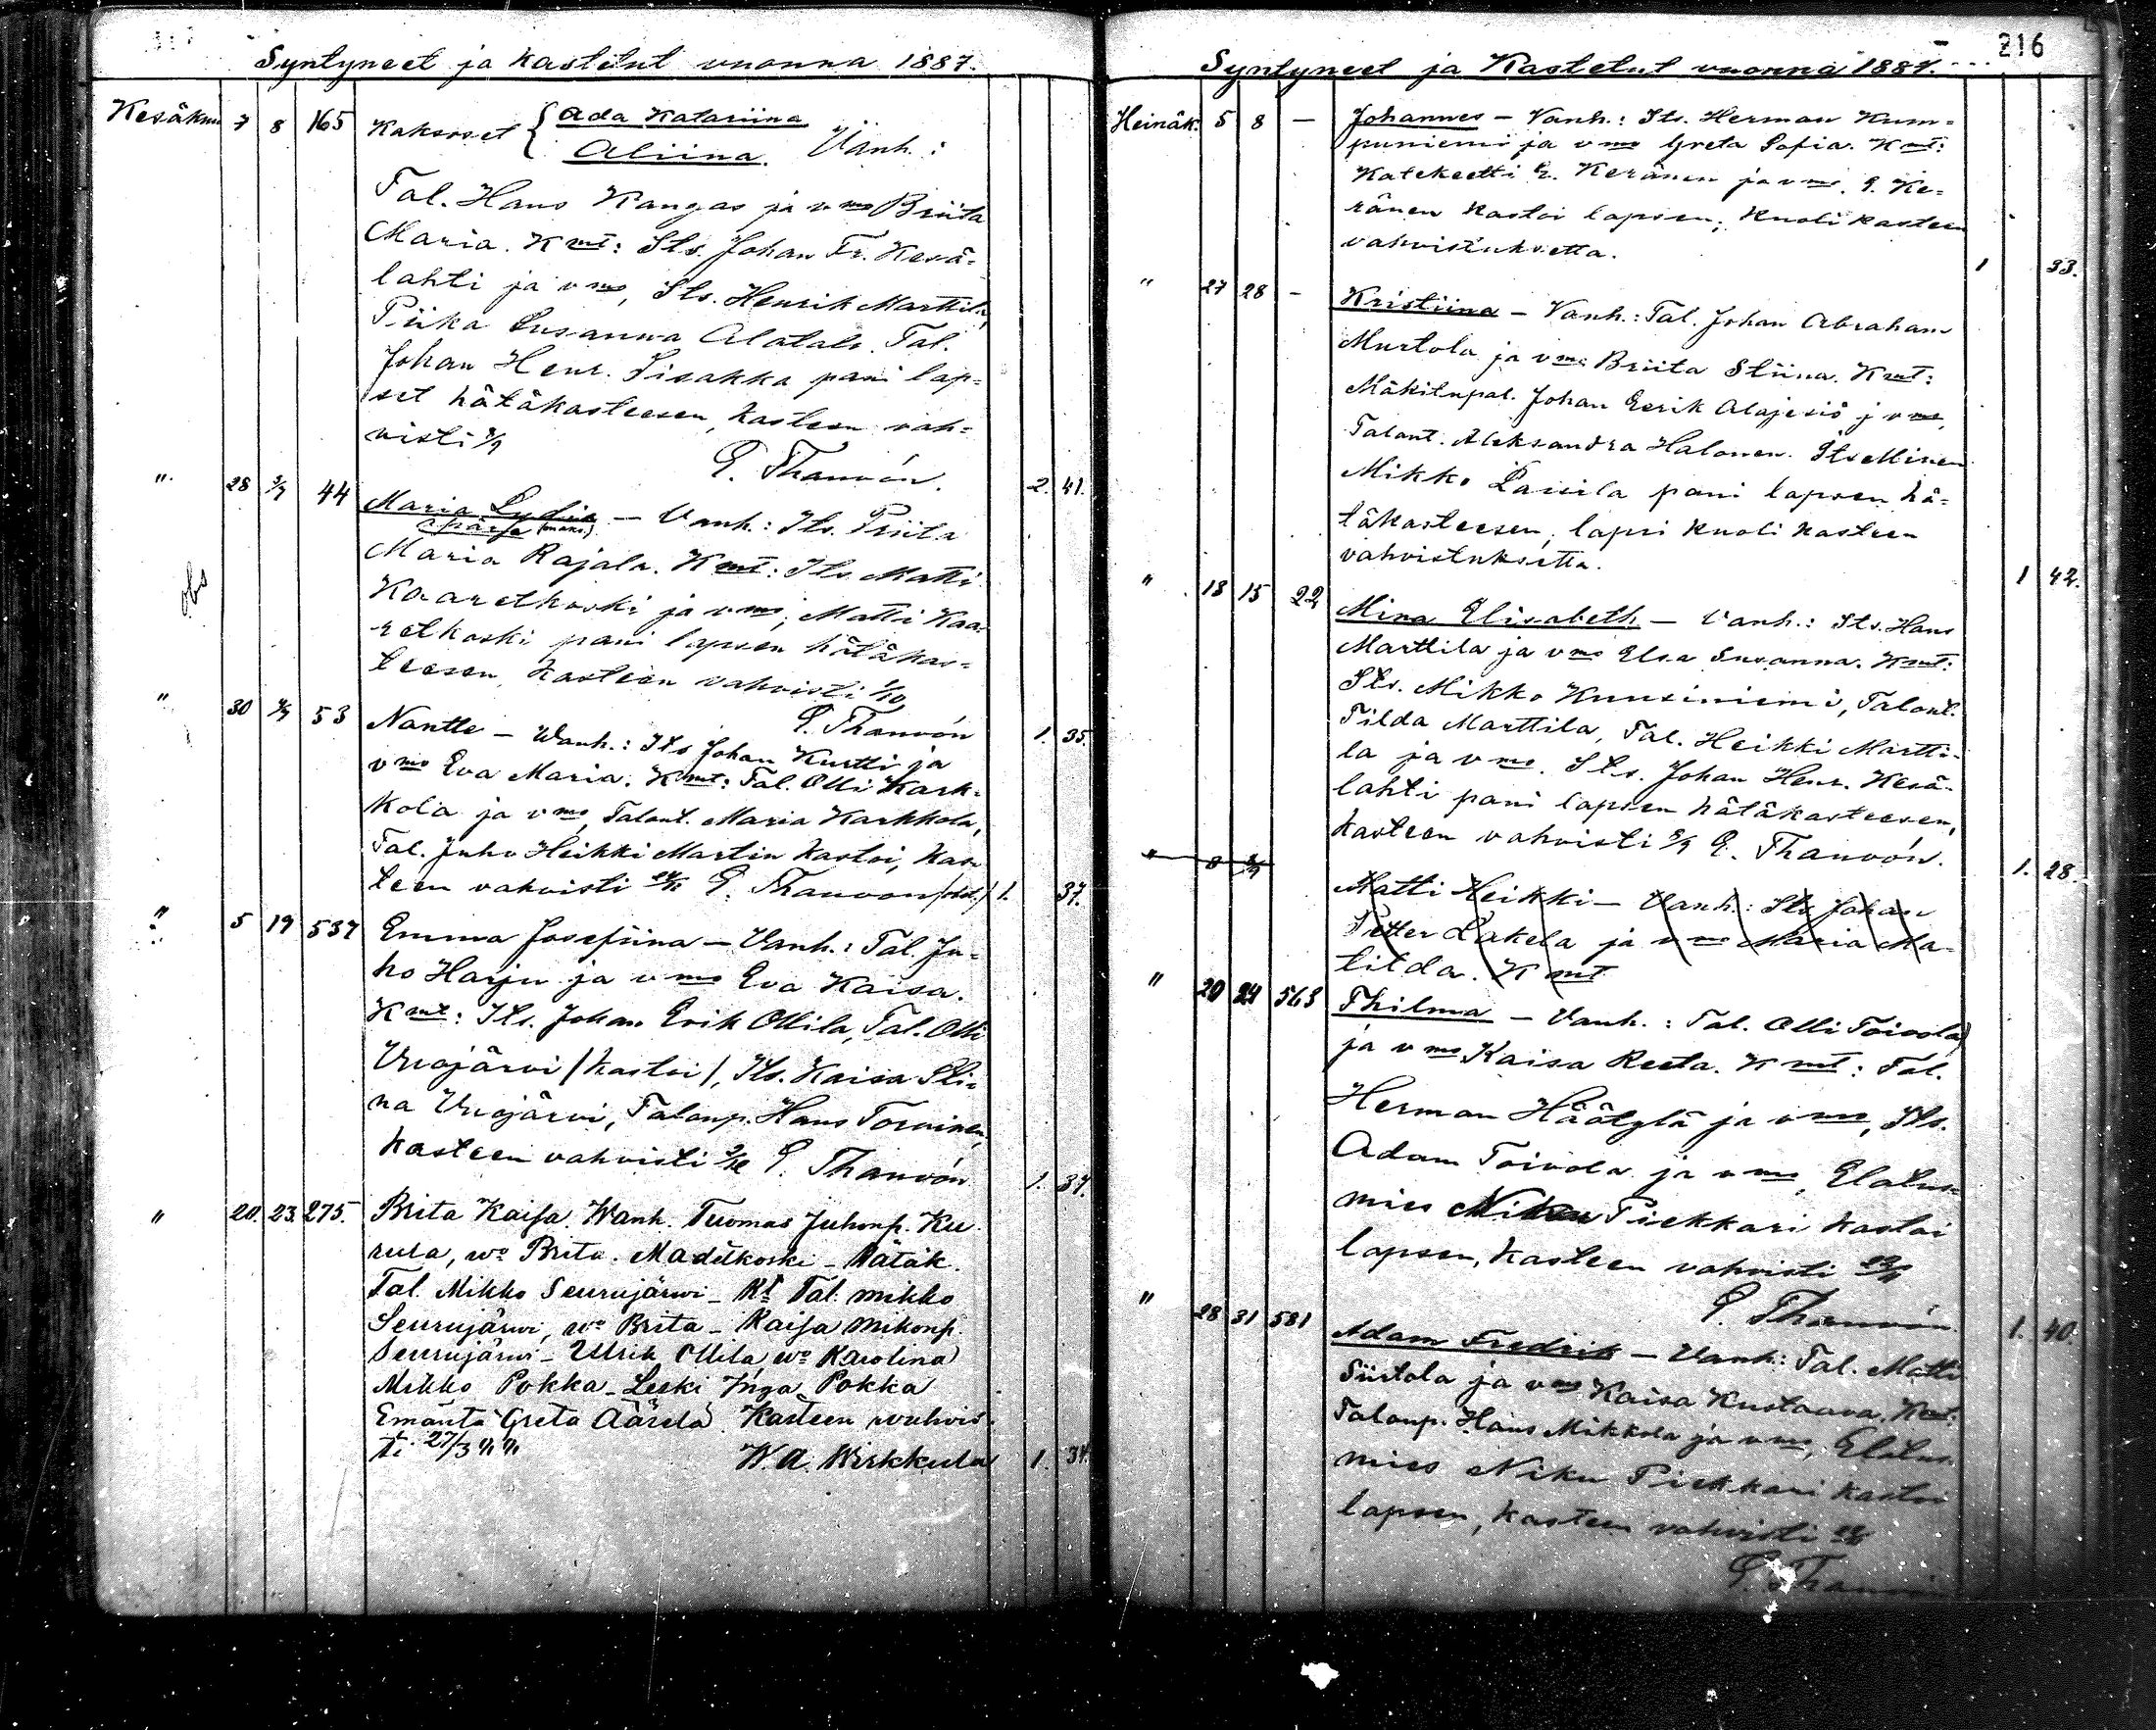 Syntyneet ja kastetut vuonna 1887.
Kesäkuu 7 8 165 Kaksoset { Ada Katariina
Aliina. Vanh.:
Tal. Hans Kangas ja vmo Briita
Maria. Kmt: Its. Johan Fr. Kesä-
lahti ja vmo, Its. Henrik Marttila,
Piika Susanna Alatalo. Tal.
Johan Henr. Sisakka pani lap-
set hätäkasteesen, kasteen vah-
visti 8/9
E. Thauvón. 2. 41.
" 28 3/7 44 Maria Lydia — Vanh.: Its. Priita
Maria Rajala. Kmt: Its. Matti
Kaaretkoski ja vmo; Matti Kaa-
retkoski pani lapsen hätäkas-
teesen, kasteen vahvisti 1/10
E. Thauvón 1. 35.
" 30 53 Nantte — Wanh.: Its Johan Kurtti ja
vmo Eva Maria. Kmt: Tal. Olli Kark-
kola ja vmo, Talont. Maria Karkkola,
Tal. Juho Heikki Martin kastoi, kas-
teen vahvisti E. Thauvón 1. 37.
" 5 19 537 Emma Josefiina — Vanh.: Tal. Ju-
ho Harju ja vmo Eva Kaisa.
Kmt: Its. Johan Erik Ollila, Tal. Olli
Vuojärvi /kastoi/, Its. Kaisa Stii-
na Vuojärvi, Talonp. Hans Torvinen,
kasteen vahvisti E. Thauvón 1. 37.
" 20. 23. 275. Brita Kaisa. Wanh. Tuomas Juhonp. Ku
rula, wo Brita. Madetkoski - Hätäk.
Tal. Mikko Seurujärwi - Kt Tal. Mikko
Seurujärwi, wo Brita - Kaisa Mikonp.
Seurujärwi - Ulrik Ollila wo Karolina
Mikko Pokka - Leski Inga Pokka
Emäntä Greta Äärelä. Kasteen wahwis-
ti 27/3
W. A. Wirkkula 1. 34.
216
Syntyneet ja Kastetut vuonna 1887.
Heinäk. 5 8 — Johannes — Vanh.: Its. Herman Kum-
puniemi ja vmo Greta Sofia. Kmt:
Katekeetti E. Keränen ja vmo. E. Ke-
ränen kastoi lapsen; Kuoli kasteen
vahvistuksetta. 1 33.
" 27 28 — Kristiina — Vanh.: Tal. Johan Abraham
Murtola ja vmo Briita Stiina. Kmt:
Mäkitupal. Johan Eerik Alajesiö j vmo,
Talont. Aleksandra Halonen. Itsellinen
Mikko Lassila pani lapsen hä-
täkasteesen, lapsi kuoli kasteen
vahvistuksetta. 1 42.
" 13 15 22 Mina Elisabeth — Vanh.: Its. Hans
Marttila ja vmo Elsa Susanna. Kmt:
Its. Mikko Kuusiniemi, Talont.
Tilda Marttila, Tal. Heikki Martti-
la ja vmo. Its. Johan Henr. Kesä-
lahti pani lapsen hätäkasteesen,
kasteen vahvisti 8/9 E. Thauvón. 1. 28.
" 8 Matti Heikki — Vanh.: Its Johan
Petter Lakela ja vmo Maria Ma-
tilda. Kmt
" 20 24 563 Thilma — Vanh.: Tal. Olli Toivola
ja vmo Kaisa Reeta. Kmt: Tal.
Herman Höötylä ja vmo, Its.
Adam Toivola ja vmo, Elatus-
mies Niku Piekkari kastoi
lapsen, kasteen vahvisti
E. Thauvón. 1. 40.
" 28 31 581 Adam Fredrik — Vanh: Tal. Matti
Siirtola ja vmo Kaisa Kustaava. Kmt:
Talonp. Hans Mikkola ja vmo, Elatus-
mies Niku Piekkari kastoi
lapsen, kasteen vahvisti
E. Thauvón